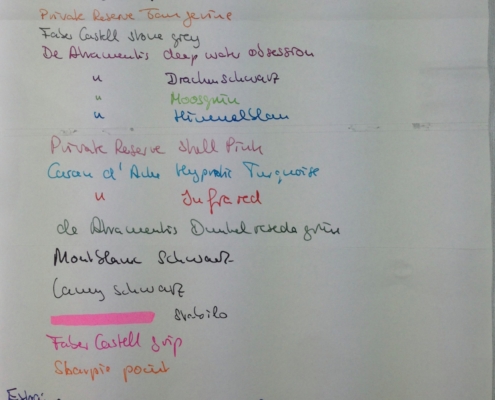 Private Reserve Tangerine
Faber Castell stone grey
De Atramentis deep water obsession
" Drachenschwarz
" Moosgrün
" Himmelblau
Private Reserve Shell Pink
Caran d'Ache Hypnotic Turquoise
" Infrared
de Atramentis Dunkelresedagrün
Montblanc Schwarz
Lamy schwarz
Stabilo
Faber Castell grip
Sharpie point